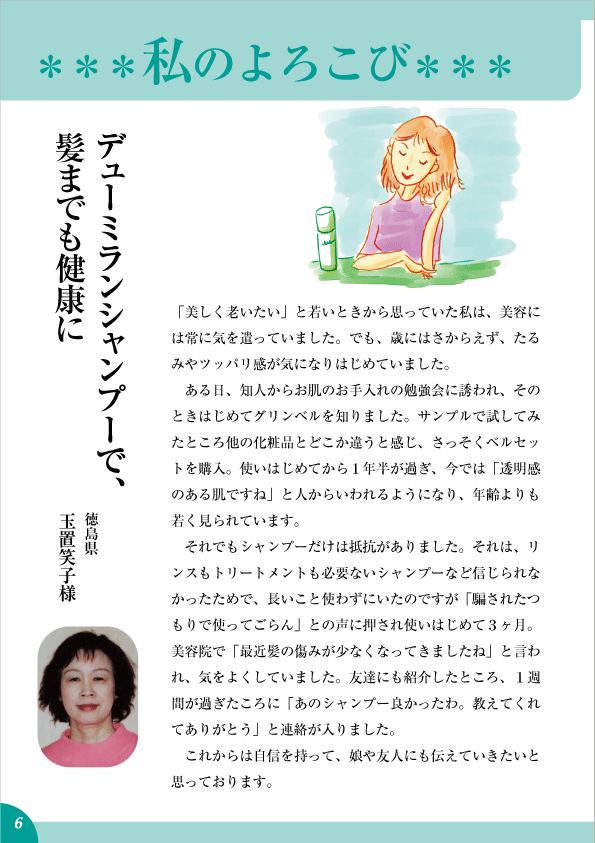 ＊＊＊私のよろこび＊＊＊
デューミランシャンプーで、
髪までも健康に
徳島県
玉置笑子様
「美しく老いたい」と若いときから思っていた私は、美容に
は常に気を遣っていました。でも、歳にはさからえず、たる
みやツッパリ感が気になりはじめていました。
　ある日、知人からお肌のお手入れの勉強会に誘われ、その
ときはじめてグリンベルを知りました。サンプルで試してみ
たところ他の化粧品とどこか違うと感じ、さっそくベルセッ
トを購入。使いはじめてから１年半が過ぎ、今では「透明感
のある肌ですね」と人からいわれるようになり、年齢よりも
若く見られています。
　それでもシャンプーだけは抵抗がありました。それは、リ
ンスもトリートメントも必要ないシャンプーなど信じられな
かったためで、長いこと使わずにいたのですが「騙されたつ
もりで使ってごらん」との声に押され使いはじめて３ヶ月。
美容院で「最近髪の傷みが少なくなってきましたね」と言わ
れ、気をよくしていました。友達にも紹介したところ、１週
間が過ぎたころに「あのシャンプー良かったわ。教えてくれ
てありがとう」と連絡が入りました。
　これからは自信を持って、娘や友人にも伝えていきたいと
思っております。
6